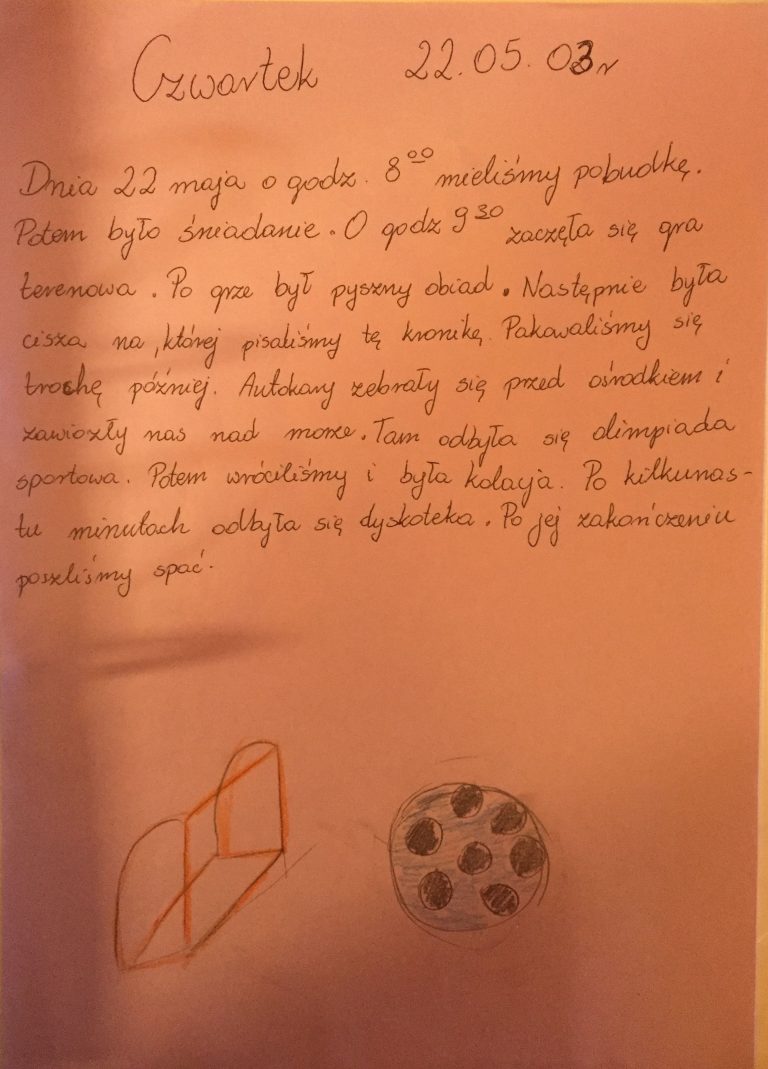 Czwartek 22.05.03r
Dnia 22 maja o godz. 8⁰⁰ mieliśmy pobudkę.
Potem było śniadanie. O godz 9³⁰ zaczęła się gra
terenowa. Po grze był pyszny obiad. Następnie była
cisza na, której pisaliśmy tę kronikę. Pakowaliśmy się
trochę później. Autokary zebrały się przed ośrodkiem i
zawiozły nas nad morze. Tam odbyła się olimpiada
sportowa. Potem wróciliśmy i była kolacja. Po kilkunas-
tu minutach odbyła się dyskoteka. Po jej zakończeniu
poszliśmy spać.